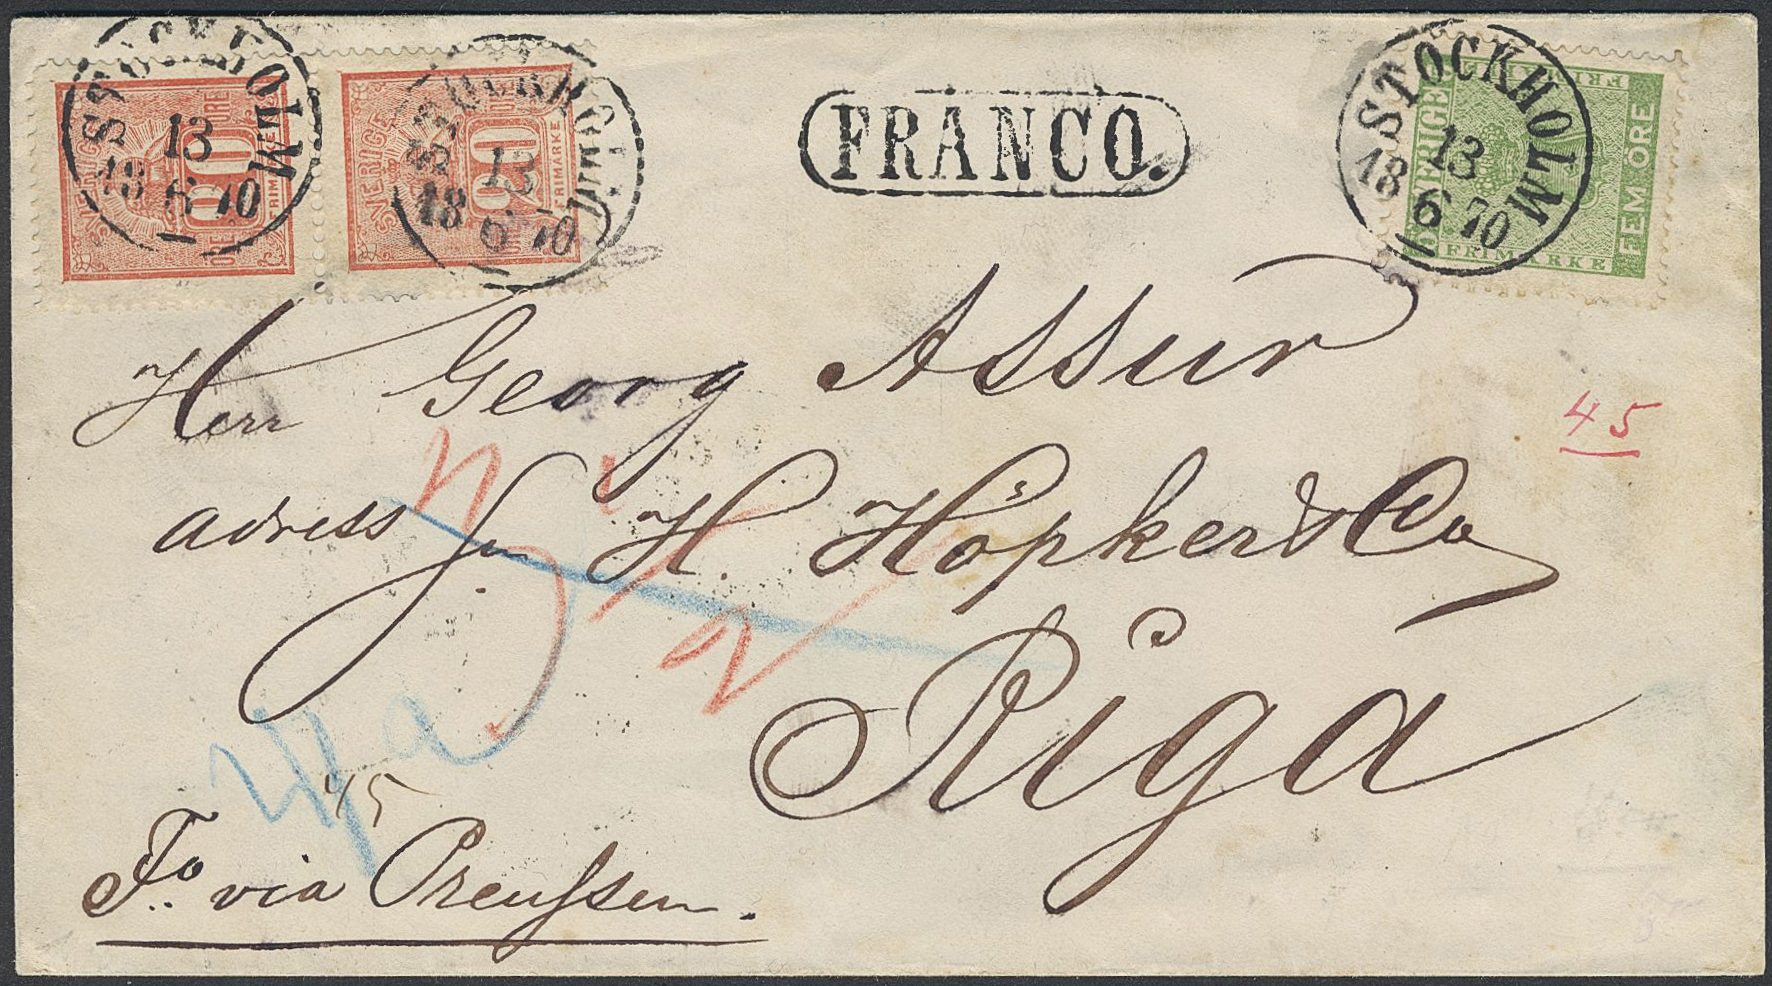 STOCKHOLM
13
18 6 70
SVERIGE
20
ÖRE
FRIMÄRKE
STOCKHOLM
13
18 6 70
SVERIGE
20
FRIMÄRKE
FRANCO.
STOCKHOLM
13
18 6 70
SVERIGE
FRIMÄRKE
FRIMÄRKE
FEM ÖRE
Herr Georg Assur
45
adress J. H. Höpker & Co
Riga
45
Fo. via Preussen.